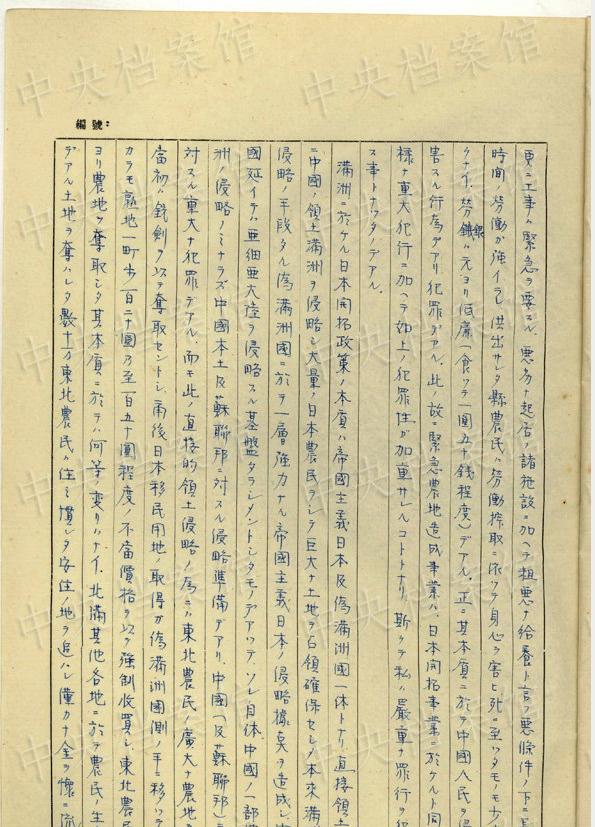 編號：
更ニ工事ハ緊急ヲ要スル、悪劣ナ起居ノ諸施設ニ加ヘテ粗悪ナ給養ト言フ悪條件ノ下ニ長
時間ノ労働ガ強イラレ供出サレタ縣農民ハ労働搾取ニ依ツテ身心ヲ害セ死ニ至ツタモノモ少
クナイ、労銀ハ元ヨリ低廉(一食ツテ一圓五十銭程度)デアル、正ニ其本質ニ於テ中國人民ヲ侵
害スル行為デアリ犯罪デアル、此ノ故ニ緊急農地造成事業ハ、日本開拓事業ニ於ケルト同
様ナ重大犯行ニ加ヘテ如上ノ犯罪性ガ加重サレルコトトナリ、斯クテ私ハ嚴重ナ罪行ヲ犯
ス事トナツタノデアル。
満洲ニ於ケル日本開拓政策ノ本質ハ帝國主義日本及偽満洲國一体トナリ、直接領土
ニ中國ノ領土満洲ヲ侵略シ大量ノ日本農民ヲシテ巨大ナ土地ヲ占領確保セシメ本来満
侵略ノ手段タル偽満洲國ニ於テ一層強力ナル帝國主義日本ノ侵略據点ヲ造成シ
國延イテハ亜細亜大陸ヲ侵略スル基盤タラシメントシタモノデアツテ ソレ自体中國ノ一部
洲ノ侵略ノミナラズ中國本土及蘇聯邦ニ対スル侵略準備デアリ、中國(及蘇聯邦)ニ
対スル重大ナ犯罪デアル、而モ此ノ直接的領土侵略ノ為ニハ東北農民ノ廣大ナ農地
當初ハ銃剣ヲ以テ奪取セントシ、爾後日本移民用地ノ取得ガ偽満洲國側ノ手ニ移ツテ
カラモ熟地一町歩一百二十圓乃至一百五十圓程度ノ不當價格ヲ以テ強制收買シ、東北農民
ヨリ農地ヲ奪取シタ其本質ニ於テハ何等ノ変リハナイ、北満其他各地ニ於テ農民ノ生
デアル土地ヲ奪ハレタ数十万東北農民ハ住ミ慣レタ安住ノ地ヲ追ハレ僅カナ金ヲ懐ニ流